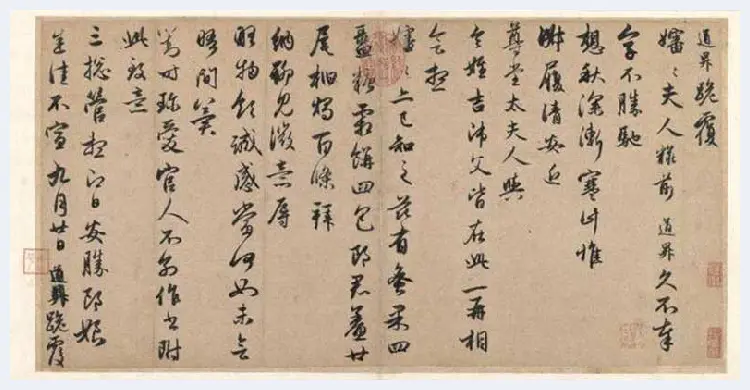 道昇跪覆
嬸〻夫人糚前道昇久不奉
字不勝馳
想秋深漸寒計惟
淑履清安近
尊堂太夫人與
令姪吉師父皆在此一再相
會想
嬸〻亦已知之茲有蜜果四
盝糖霜餅四包郎君鯗廿
尾桕燭百條拜
納聊見微意辱
物領誠感當何如未會
晤間冀
對時珍愛官人不別作書附
此致意
三總管想即日安勝郎娘
佳不宣九月廿日道昇跪覆